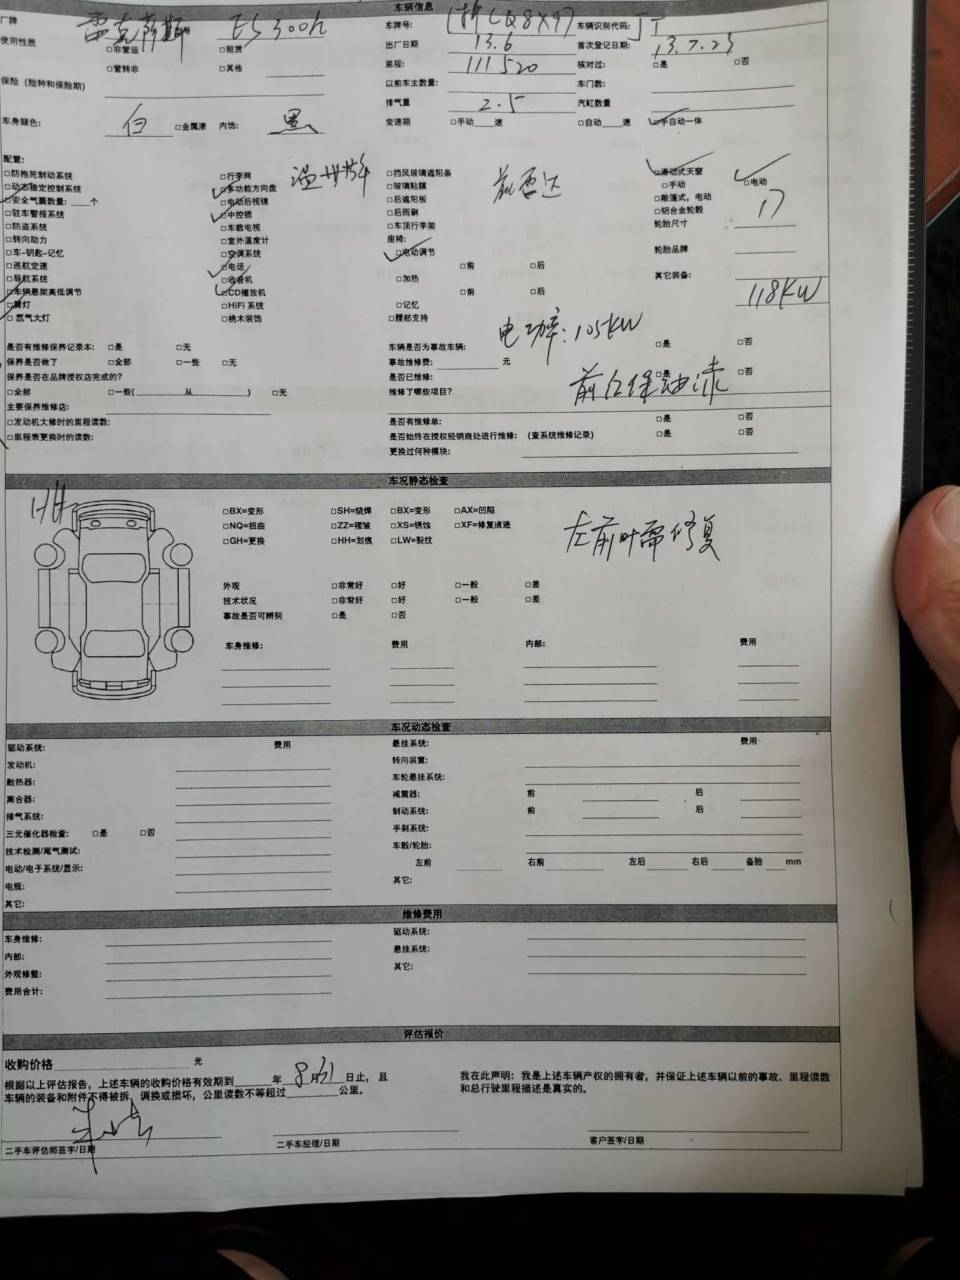 车辆信息
厂牌 雷克萨斯 号 ES300h 车牌号: LQ8X97 车辆识别代码: JT
使用性质 □非营运 □租赁 出厂日期 13.6 首次登记日期: 13.7.23
□营转非 □其他 里程: 111520 核对过: □是 □否
保险（险种和保险期） 以前车主数量: 车门数:
排气量 2.5 汽缸数量
车身颜色: 白 □金属漆 内饰: 黑 变速箱 □手动 速 □自动 速 □手自动一体
配置:
□防抱死制动系统 □行李网 □挡风玻璃遮阳条 前雷达 □滑动式天窗 □电动
□动态稳定控制系统 □多功能方向盘 □玻璃贴膜 □手动
□安全气囊数量: 个 □电动后视镜 □后遮阳板 □敞篷式，电动
□驻车警报系统 □中控锁 □后雨刷 □铝合金轮毂 17
□防盗系统 □车载电视 □车顶行李架 轮胎尺寸
□转向助力 □室外温度计 座椅:
□车-钥匙-记忆 □空调系统 □电动调节 轮胎品牌
□巡航定速 □电话 □前 □后
□导航系统 □收音机 □加热 其它装备:
□车辆悬架高低调节 □CD播放机 □前 □后 118KW
□雾灯 □HiFi 系统 □记忆
□氙气大灯 □桃木装饰 □腰部支持 电功率: 105KW
是否有维修保养记录本: □是 □无 车辆是否为事故车辆: □是 □否
保养是否做了 □全部 □一些 □无 事故维修费: 元
保养是否在品牌授权店完成的? 是否已维修: □是 □否
□全部 □一些( 从 ) □无 维修了哪些项目?
主要保养维修店:
□发动机大修时的里程读数: 是否有维修单: □是 □否
□里程表更换时的读数: 是否始终在授权经销商处进行维修: （查系统维修记录） □是 □否
更换过何种模块:
车况静态检查
HH
□BX=变形 □SH=烧焊 □BX=变形 □AX=凹陷
□NQ=扭曲 □ZZ=褶皱 □XS=锈蚀 □XF=修复痕迹 左前叶需修复
□GH=更换 □HH=划痕 □LW=裂纹
外观 □非常好 □好 □一般 □差
技术状况 □非常好 □好 □一般 □差
事故是否可辨别 □是 □否
车身维修: 费用 内部: 费用
车况动态检查
驱动系统: 费用 悬挂系统: 费用
发动机: 转向装置:
散热器: 车轮悬挂系统:
离合器: 减震器: 前 后
排气系统: 制动系统: 前 后
三元催化器检查: □是 □否 手刹系统:
技术检测/尾气测试: 车毂/轮胎:
电动/电子系统/显示: 左前 右前 左后 右后 备胎 mm
电瓶: 其它:
其它:
维修费用
车身维修: 驱动系统:
内部: 悬挂系统:
外观修整: 其它:
费用合计:
评估报价
收购价格 元
根据以上评估报告，上述车辆的收购价格有效期到 年 8月31 日止，且 我在此声明：我是上述车辆产权的拥有者，并保证上述车辆以前的事故、里程读数
车辆的装备和附件不得被拆，调换或损坏，公里读数不等超过 公里。 和总行驶里程描述是真实的。
二手车评估师签字/日期 二手车经理/日期 客户签字/日期